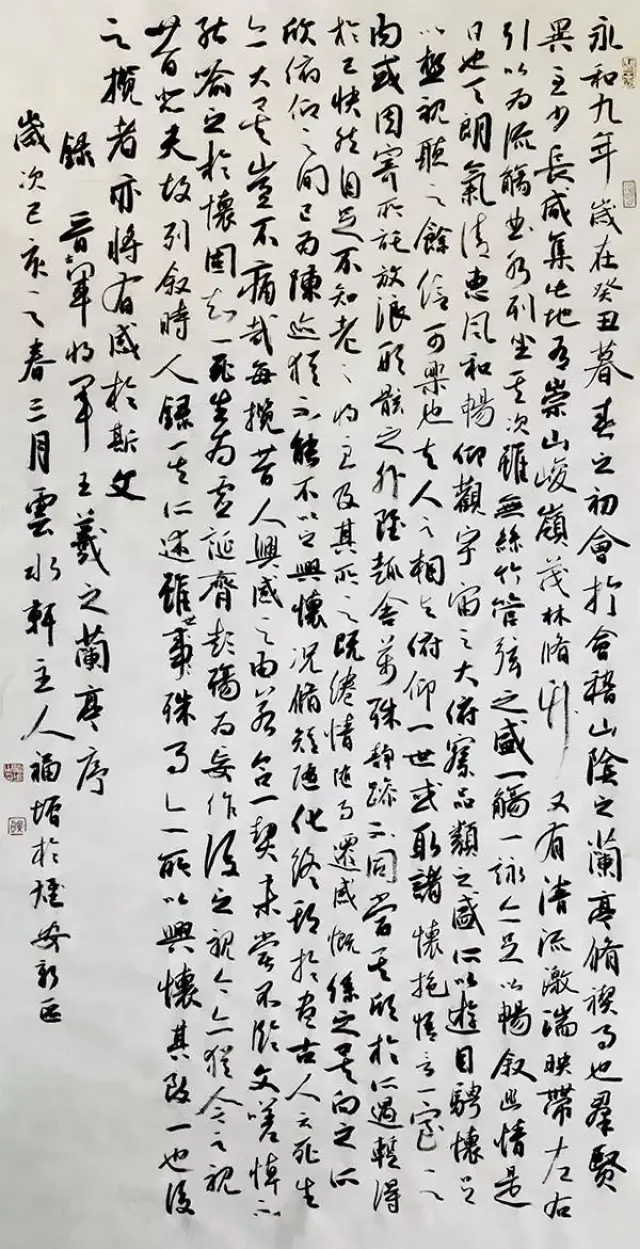 永和九年歲在癸丑暮春之初會於會稽山陰之蘭亭脩禊事也羣賢
畢至少長咸集此地有崇山峻嶺茂林脩竹又有清流激湍映帶左右
引以為流觴曲水列坐其次雖無絲竹管弦之盛一觴一詠亦足以暢敘幽情是
日也天朗氣清惠風和暢仰觀宇宙之大俯察品類之盛所以遊目騁懷足
以極視聽之餘信可樂也夫人之相與俯仰一世或取諸懷抱悟言一室之
內或因寄所託放浪形骸之外雖趣舍萬殊靜躁不同當其欣於所遇輕得
於己快然自足不知老之將至及其所之既倦情隨事遷感慨係之矣向之所
欣俯仰之間已為陳迹猶不能不以之興懷況脩短隨化終期於盡古人云死生
亦大矣豈不痛哉每攬昔人興感之由若合一契未嘗不臨文嗟悼不
能喻之於懷固知一死生為虛誕齊彭殤為妄作後之視今亦猶今之視
昔悲夫故列敘時人錄其所述雖世事殊事異所以興懷其致一也後
之攬者亦將有感於斯文
錄晉軍將軍王羲之蘭亭序
歲次己亥之春三月雲水軒主人福增於新區